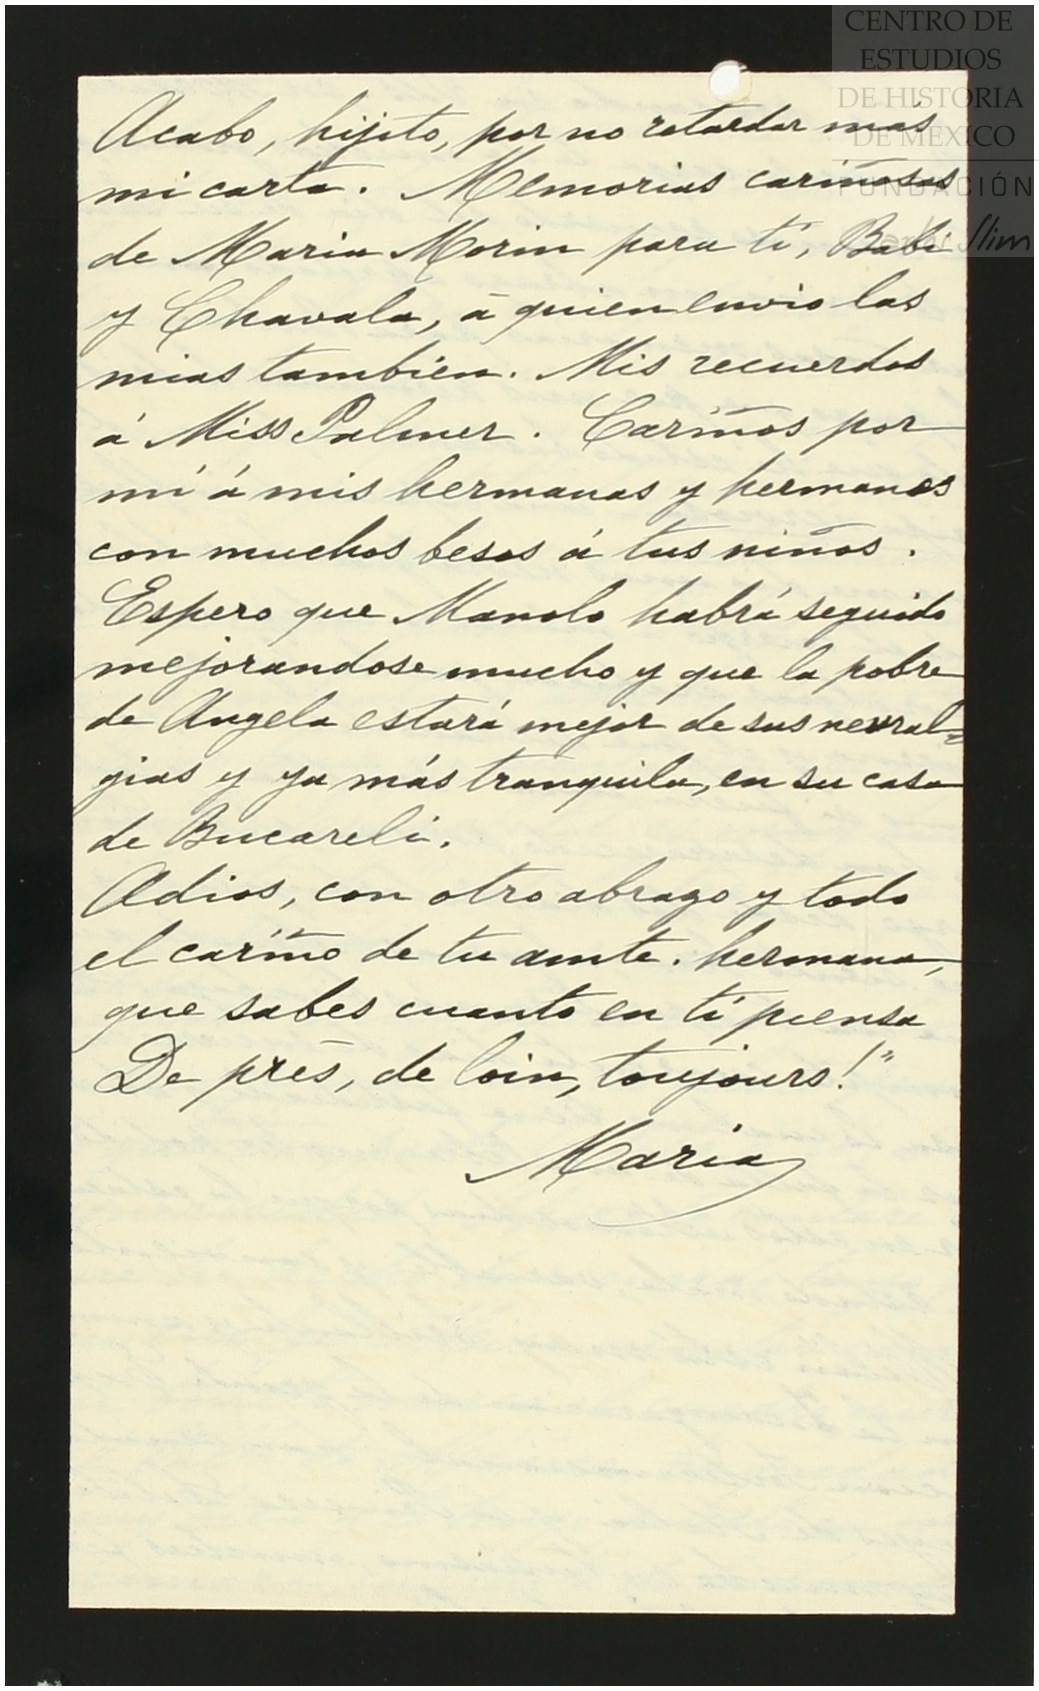 CENTRO DE
ESTUDIOS
DE HISTORIA
DE MÉXICO
FUNDACIÓN
Slim
Acabo, hijito, por no retardar más
mi carta. Memorias cariñosas
de Maria Morin para tí, Babi
y Chavala, á quien envio las
mias tambien. Mis recuerdos
á Miss Palmer. Cariños por
mí á mis hermanas y hermanos
con muchos besos á tus niños.
Espero que Manolo habrá seguido
mejorandose mucho y que la pobre
de Angela estará mejor de sus neural=
gias y ya más tranquila, en su casa
de Bucareli.
Adios, con otro abrazo y todo
el cariño de tu amte. hermana,
que sabes cuanto en tí piensa
De près, de loin, toujours!"
Maria